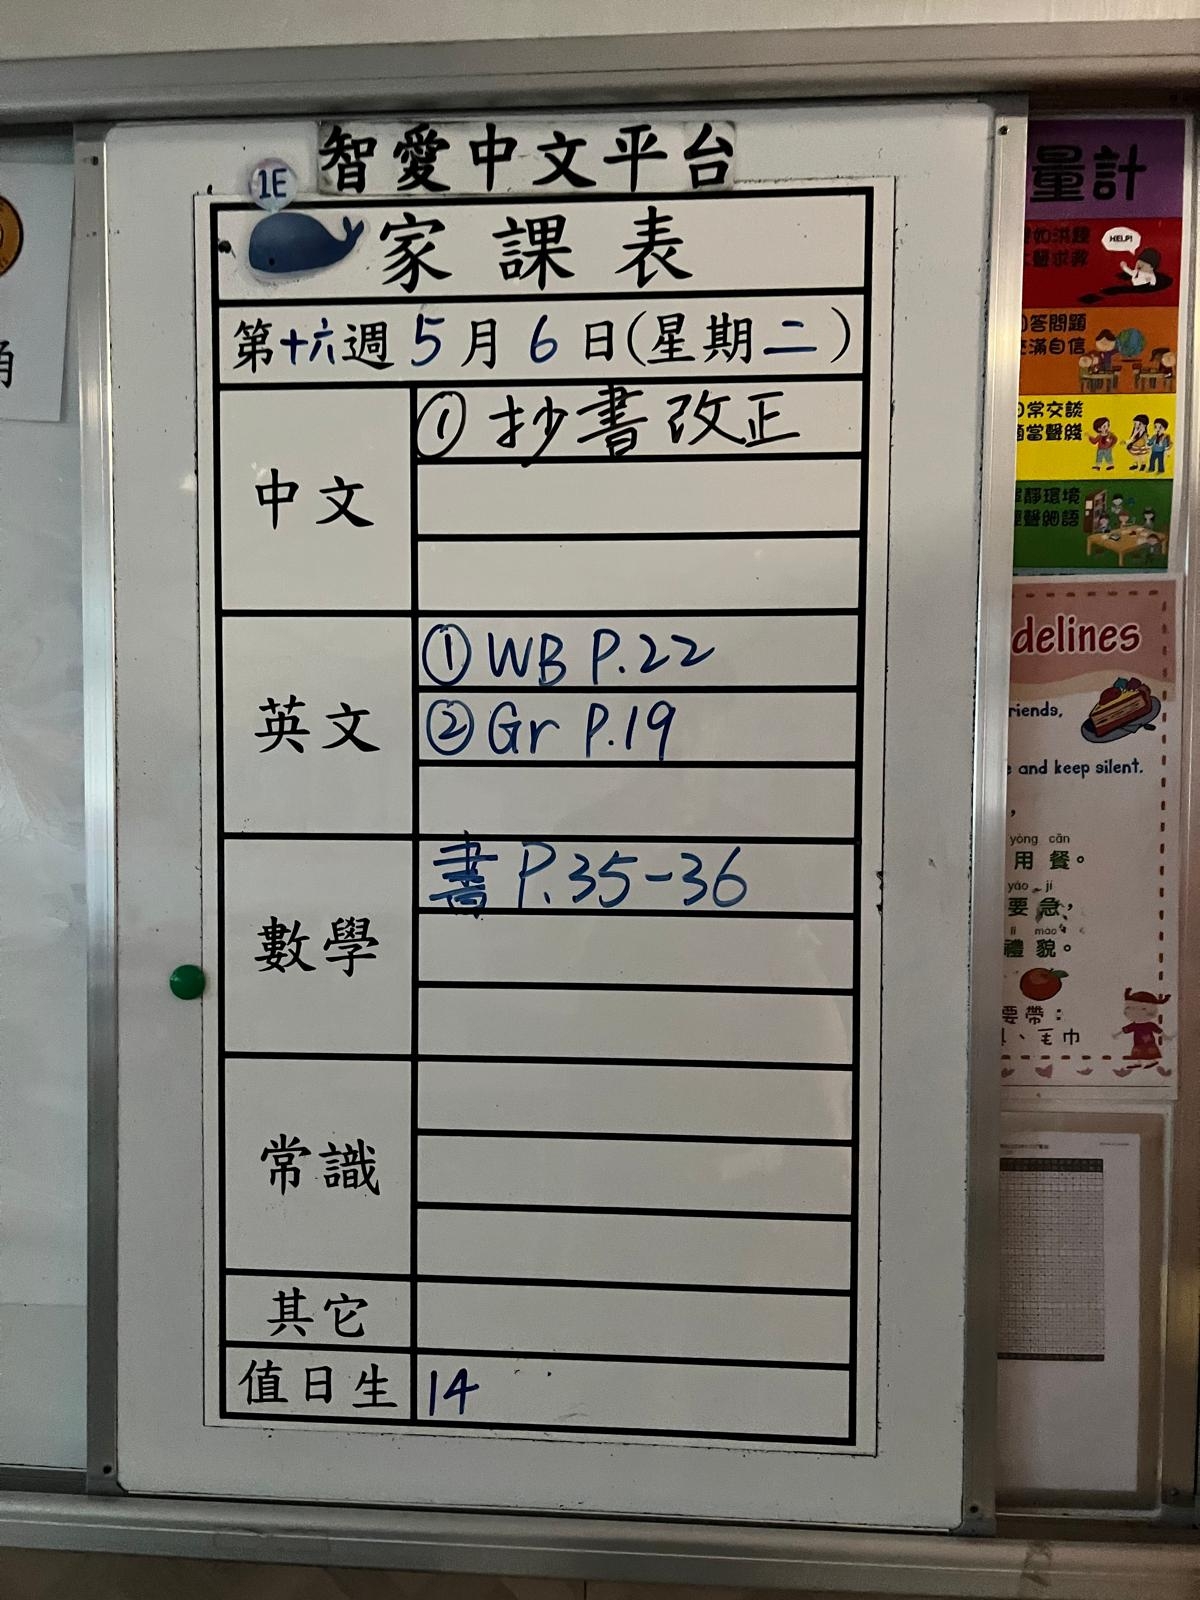 智愛中文平台
1E
家課表
第十六週 5月6日(星期二)
中文
① 抄書改正
英文
① WB P.22
② Gr P.19
數學
書 P.35-36
常識
其它
值日生
14
量計
HELP!
答問題
滿自信
常交談
當聲綫
靜環境
聲細語
delines
riends,
and keep silent.
,
yòng cān
用餐。
yào jí
要急，
lǐ mào
禮貌。
要帶：
、毛巾